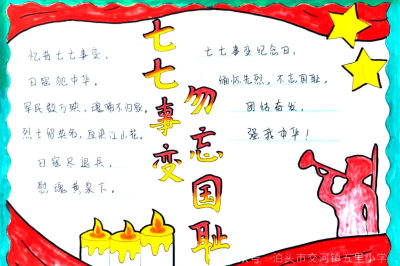 七七事变
勿忘国耻
忆昔七七事变,
日寇犯中华。
军民数万殃,魂
烈士留英名,
日寇尽退兵,
慰魂黄泉下。
七七事变纪念日,
缅怀先烈,不忘国耻,
团结奋发,
强我中华!
公众号·泊头市交河镇五里小学